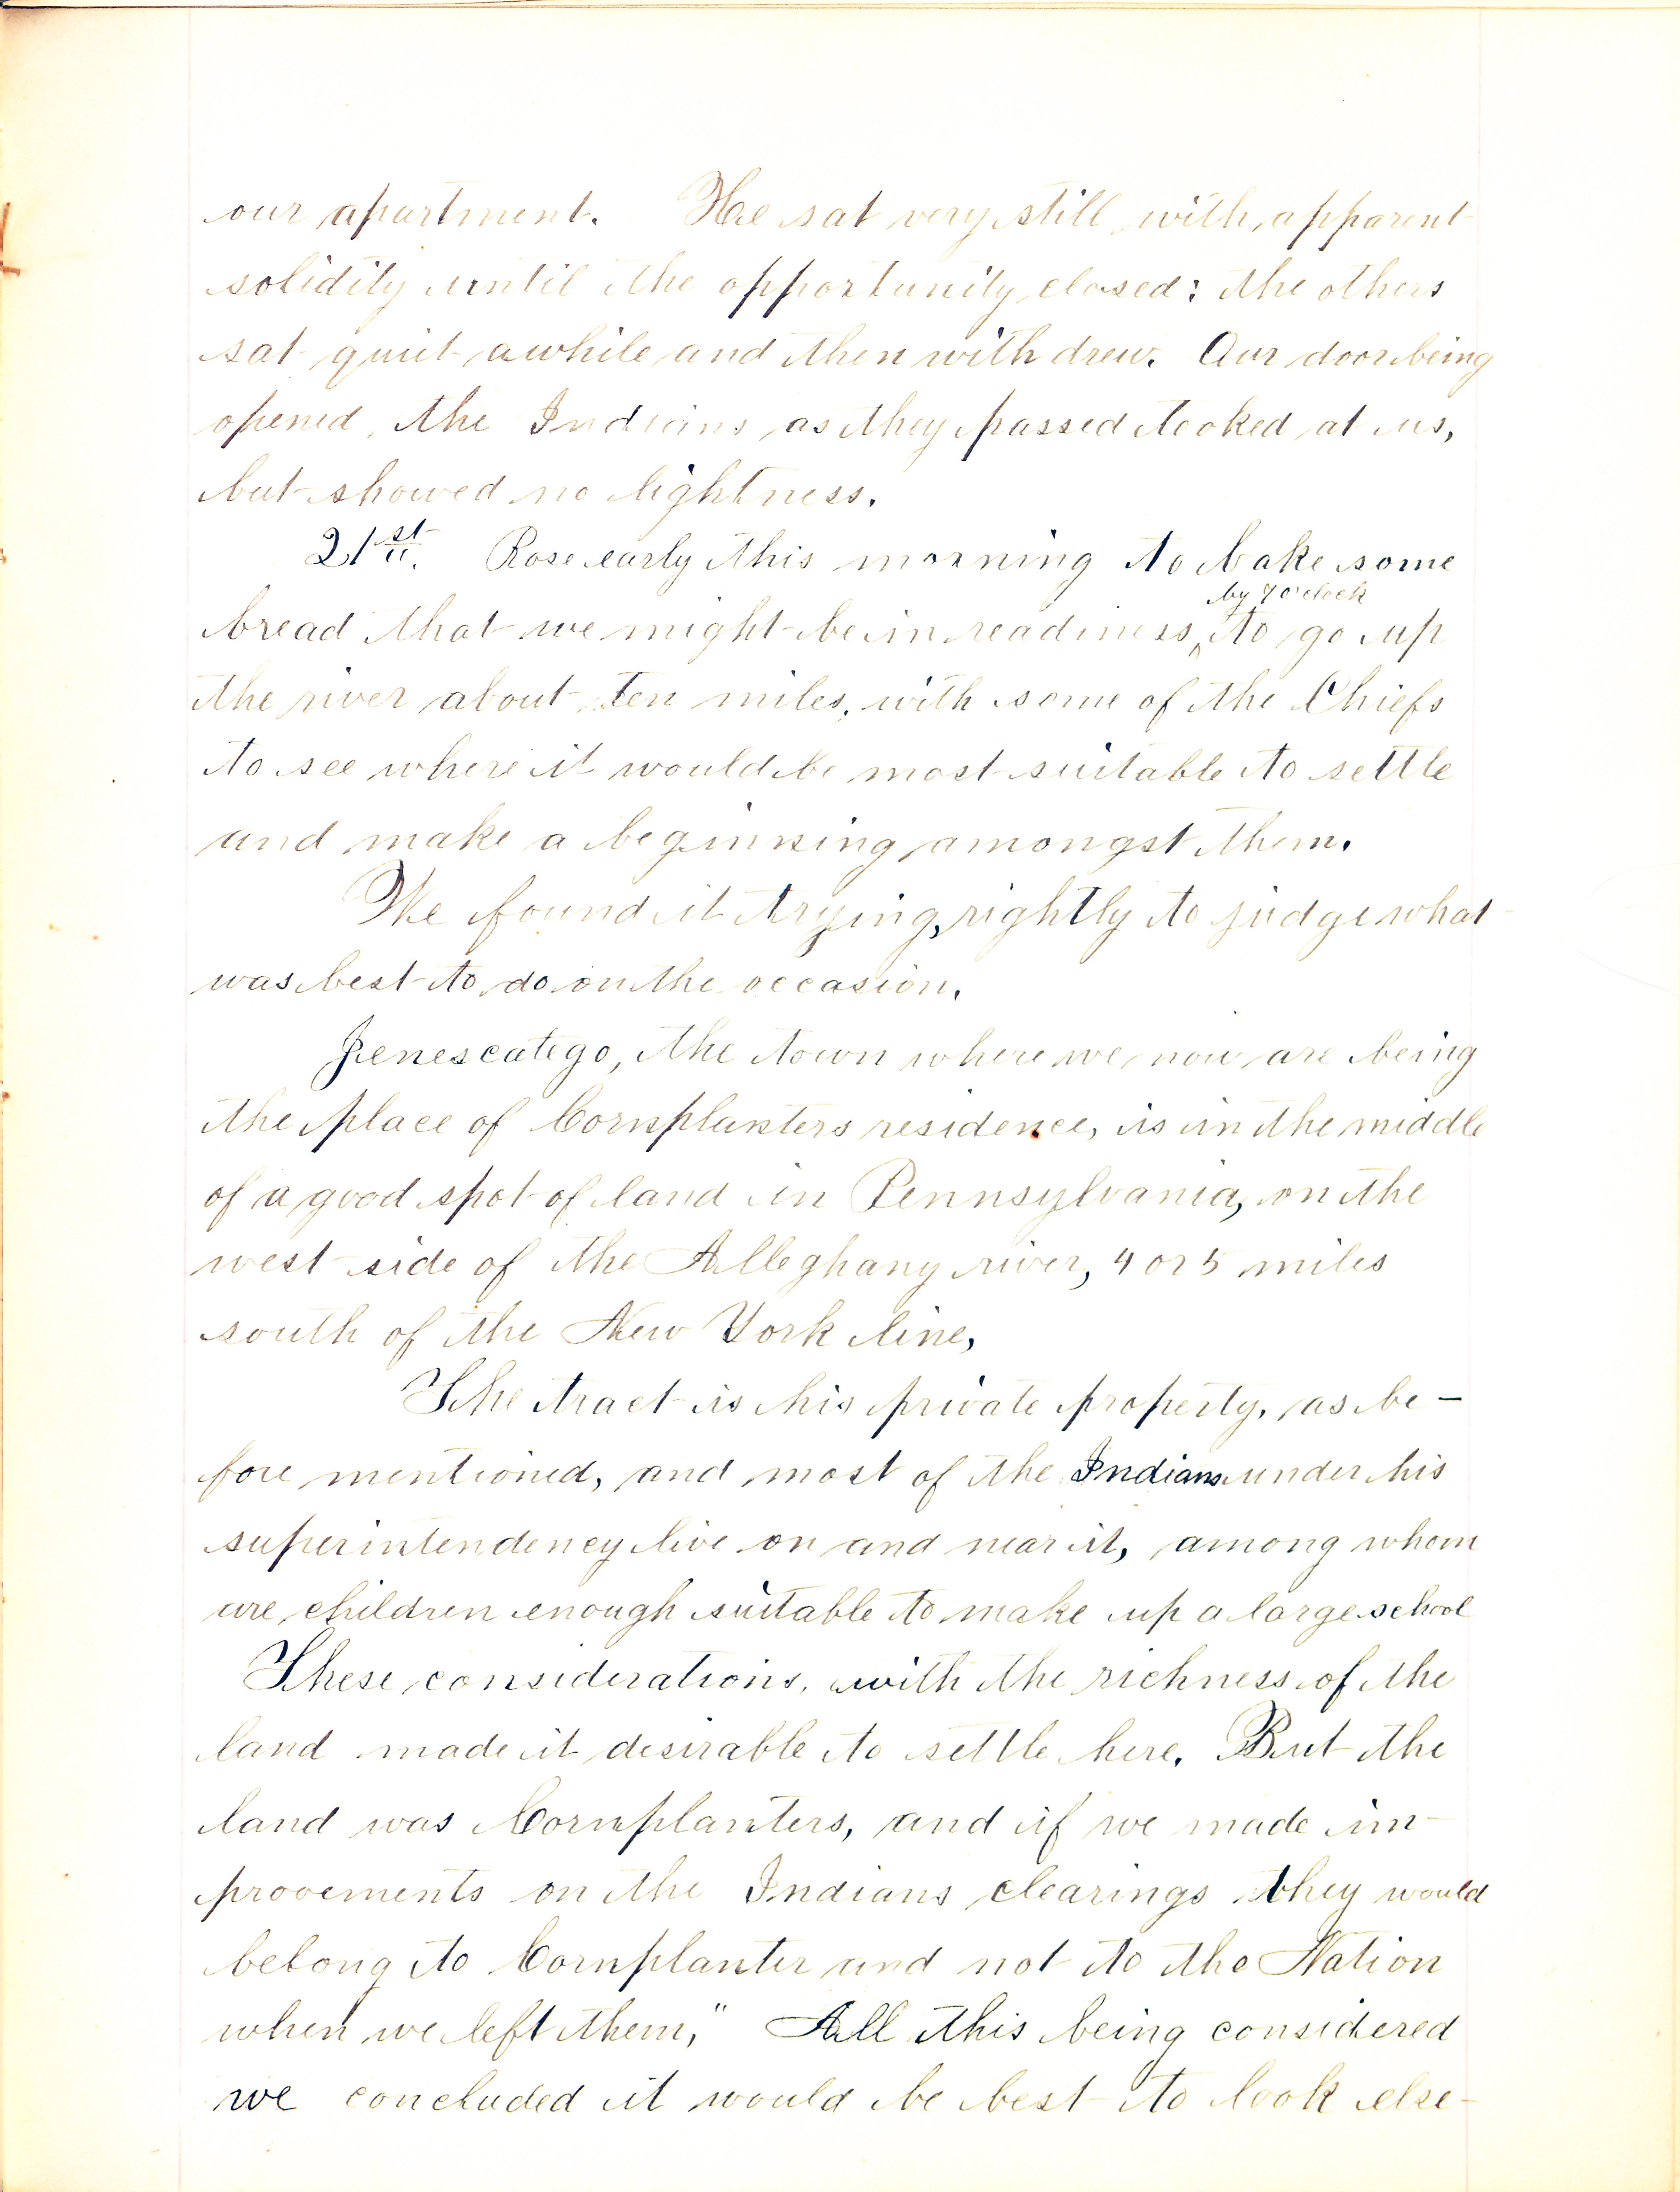 our apartment. He sat very still with apparent
solidity until the opportunity closed: the others
sat quiet awhile and then with drew. Our door being
opened, the Indians as they passed looked at us,
but showed no lightness.
21st. Rose early this morning to bake some
by 7 o'clock
bread that we might be in readiness, to go up
the river about ten miles, with some of the Chiefs
to see where it would be most suitable to settle
and make a beginning amongst them.
We found it trying, rightly to judge what
was best to do on the occasion.
Jenescatego, the town where we now are being
the place of Cornplanters residence, is in the middle
of a good spot of land in Pennsylvania, on the
west side of the Alleghany river, 4 or 5 miles
south of the New York line,
The tract is his private property, as be-
fore mentioned, and most of the Indians under his
superintendency live on and near it, among whom
are children enough suitable to make up a large school
These considerations, with the richness of the
land made it desirable to settle here. But the
land was Cornplanters, and if we made im-
provements on the Indians clearings they would
belong to Cornplanter and not to the Nation
when we left them," All this being considered
we concluded it would be best to look else-